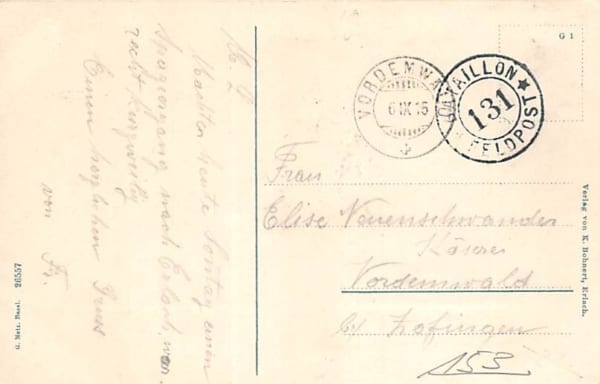 M. L
Machten heute Sontag einen
Spaziergang nach Erlach, war
recht kurzweilig
Einen herzlichen Gruss
von Fz.
G. Metz, Basel. 26557
VORDEMWA
6 IX 15
BATAILLON
131
FELDPOST
G 1
Frau
Elise Neuenschwander
Käserei
Vordemwald
b/ Zofingen
153
Verlag von K. Bohnert, Erlach.